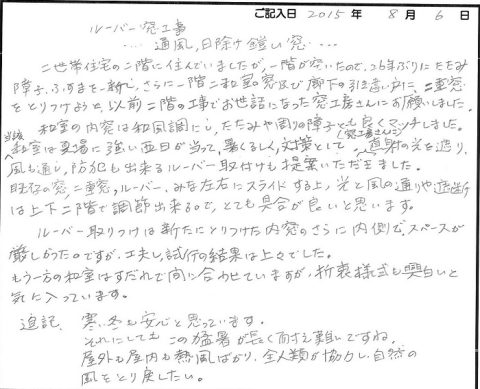 ご記入日 2015 年 8 月 6 日
ルーバー窓工事
… 通風,日除け鎧い窓 …
二世帯住宅の二階に住んでいましたが、一階が空いたので、26年ぶりにたたみ
障子、ふすまを一新し、さらに一階二和室の窓及び廊下の引き違い戸に、二重窓
をとりつけようと、以前二階の工事でお世話になった窓工房さんにお願いしました。
和室の内窓は和風調にし、たたみや周りの障子とも良くマッチしました。
和室は夏場に強い西日が当って、暑くるしく、対策として(窓工房さんに)、直射の光を遮り、
風も通し、防犯も出来るルーバー取付けも提案いただきました。
既存の窓,二重窓,ルーバー、みな左右にスライドする上、光と風の通りや遮断
は上下二階で調節出来るので、とても具合が良いと思います。
ルーバー取りつけは新たにとりつけた内窓のさらに内側で、スペースが
厳しかったのですが、工夫し、試行の結果は上々でした。
もう一方の和室はすだれで間に合わせていますが、折衷様式も面白いと
気に入っています。
追記、 寒い冬も安心と思っています。
それにしても この猛暑が長く耐え難いですね。
屋外も屋内も熱風ばかり、全人類が協力し、自然の
風をとり戻したい。